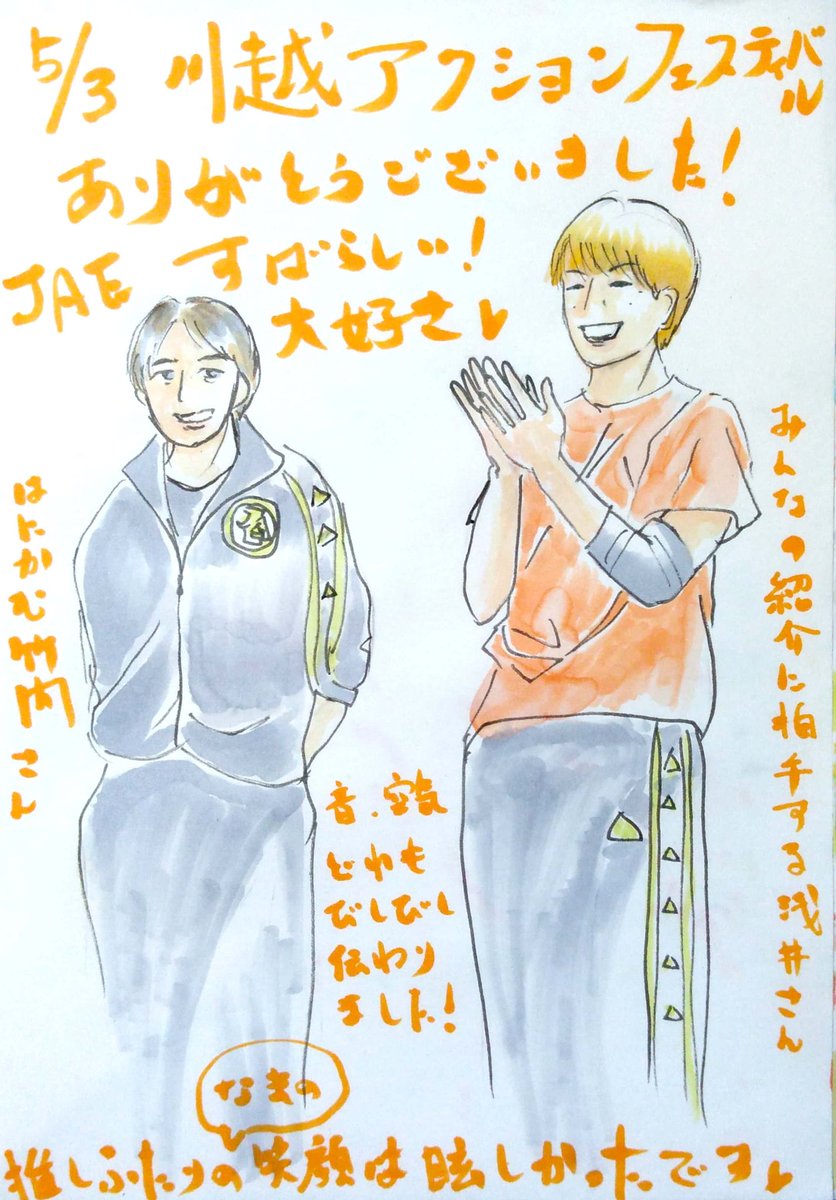 5/3 川越アクションフェスティバル
ありがとうございました!
JAE すばらしい!
大好き♥
はにかむ竹内さん
みんなの紹介に拍手する浅井さん
音、空気
どれも
びしびし
伝わり
ました!
なまの
推しふたりの笑顔は眩しかったです♥